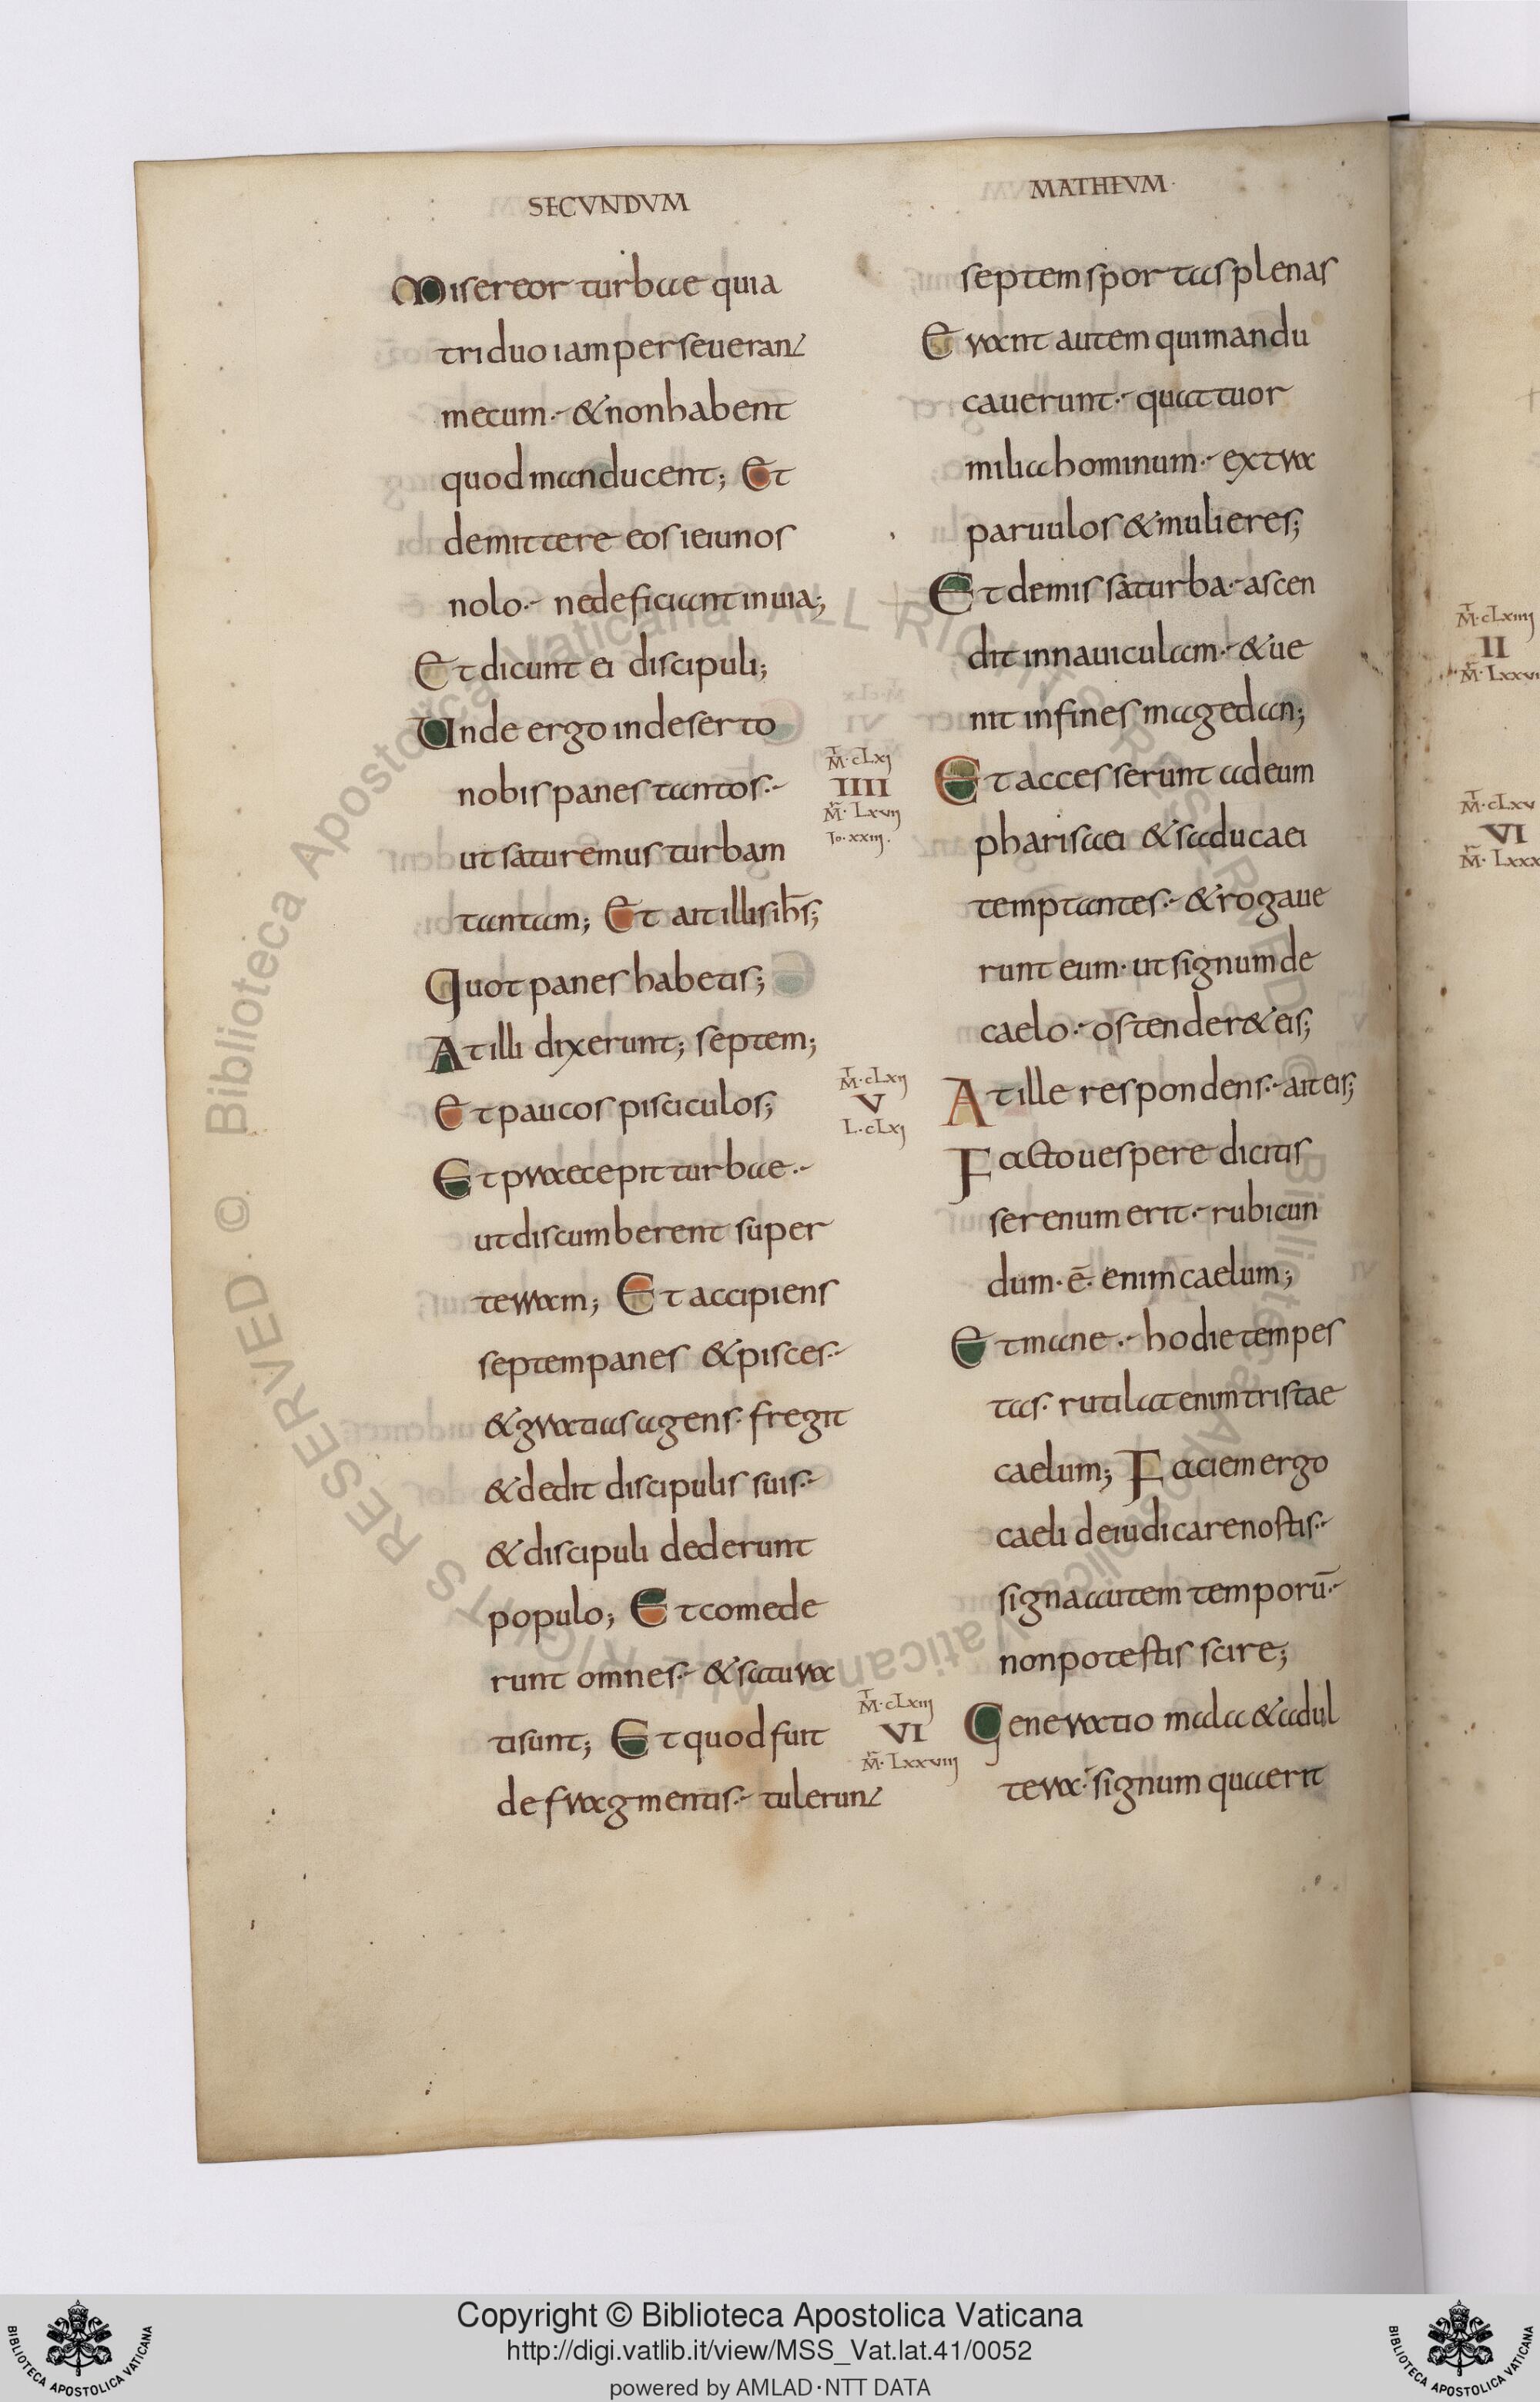 SECVNDVM
Misereor turbae quia
triduo iam perseuerant
mecum· & non habent
quod manducent; Et
demittere eos ieiunos
nolo· ne deficiant in uia;
Et dicunt ei discipuli;
Unde ergo in deserto
nobis panes tantos·
ut saturemus turbam
tantam; Et ait illis ihs̄;
Quot panes habetis;
At illi dixerunt; septem;
Et paucos pisciculos;
Et praecepit turbae·
ut discumberent super
terram; Et accipiens
septem panes & pisces·
& gratias agens· fregit
& dedit discipulis suis·
& discipuli dederunt
populo; Et comede
runt omnes· & satura
ti sunt; Et quod fuit
de fragmentis· tulerunt
T̄
M·cLxi
IIII
M̄r· Lxvii
Io·xxiii·
T̄
M·cLxii
V
L·cLxi
T̄
M·cLxiii
VI
M̄r· Lxxviii
MATHEVM·
septem sportas plenas
Erant autem qui mandu
cauerunt· quattuor
milia hominum· extra
paruulos & mulieres;
Et demissa turba· ascen
dit in nauiculam· & ue
nit in fines magedan;
Et accesserunt ad eum
pharisaei & saducaei
temptantes· & rogaue
runt eum· ut signum de
caelo· ostender& eis;
At ille respondens· ait eis;
Facto uespere dicitis
serenum erit· rubicun
dum· ē· enim caelum;
Et mane· hodie tempes
tas· rutilat enim tristae
caelum; Faciem ergo
caeli deiudicare nostis·
signa autem temporū·
non potestis scire;
Generatio mala & adul
tera· signum quaerit
T̄
M·cLxiiii
II
M̄r· Lxxvi
T̄
M·cLxv
VI
M̄r· Lxxx
© Biblioteca Apostolica Vaticana ALL RIGHTS RESERVED · © Biblioteca Apostolica Vaticana ALL RIGHTS RESERVED ·
Copyright © Biblioteca Apostolica Vaticana
http://digi.vatlib.it/view/MSS_Vat.lat.41/0052
powered by AMLAD·NTT DATA
BIBLIOTECA APOSTOLICA VATICANA
BIBLIOTECA APOSTOLICA VATICANA